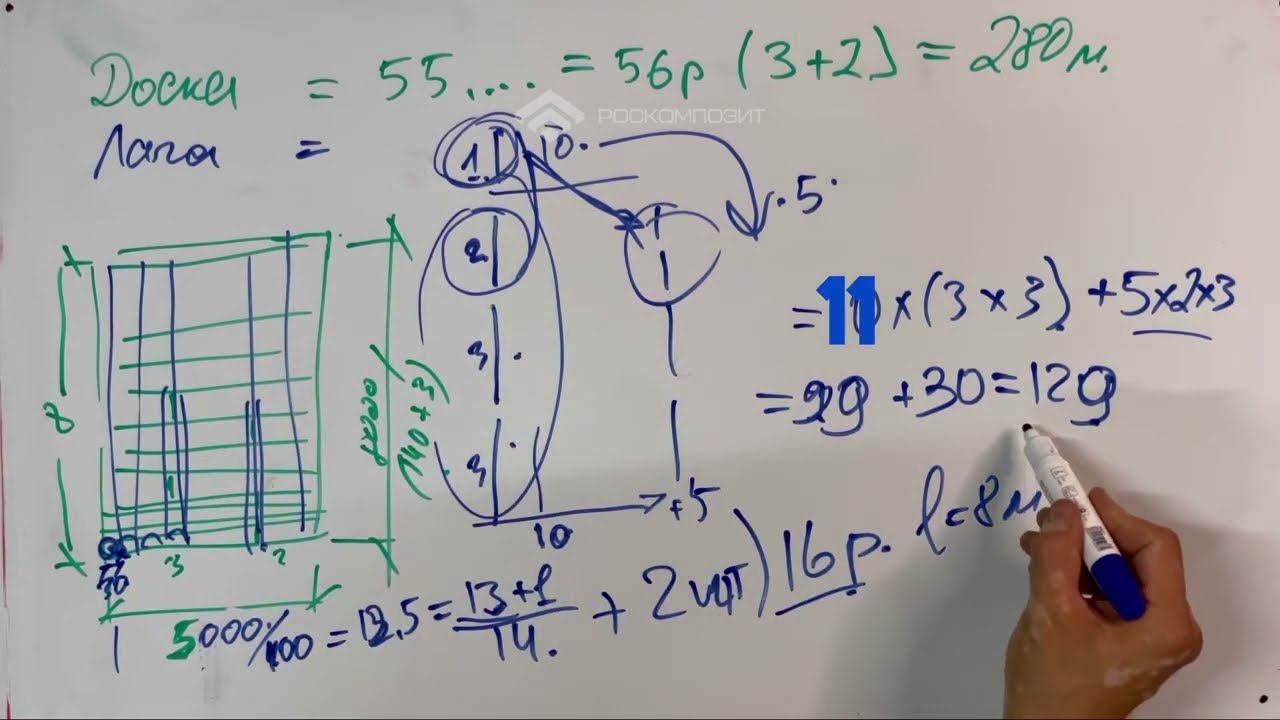 Доска = 55,... = 56р (3+2) = 280м.
РОСКОМПОЗИТ
Лага =
1 10. .5.
2
3
3
= 11 x (3 x 3) + 5x2x3
= 99 + 30 = 129
8
(140+3)
10 +5
1
3 2
l = 8м
5000/400 = 12,5 = 13+1/14. + 2шт) 16р.